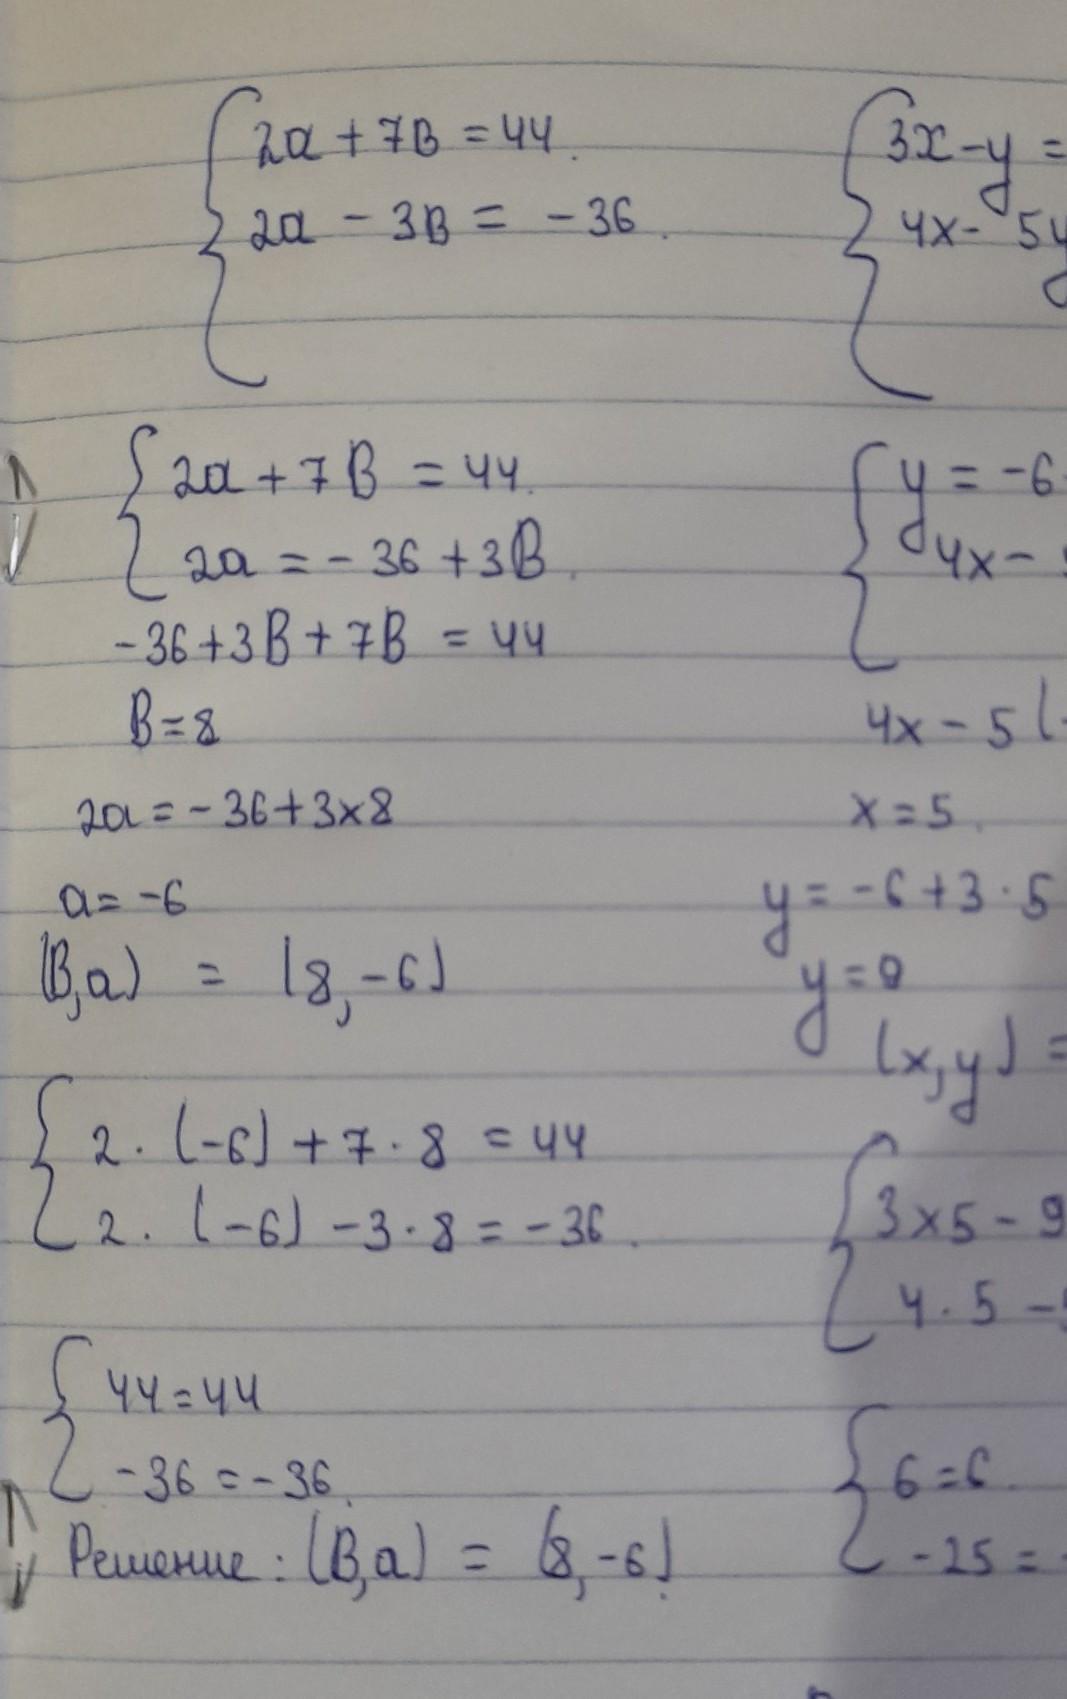 2a + 7B = 44.
2a - 3B = -36.
2a + 7B = 44.
2a = - 36 + 3B.
-36 + 3B + 7B = 44
B = 8
2a = - 36 + 3 x 8
a = -6
(B,a) = (8,-6)
2 · (-6) + 7 · 8 = 44
2 · (-6) - 3 · 8 = -36.
44 = 44
-36 = -36.
Решение : (B,a) = (8,-6).
3x - y =
4x - 5y
y = -6
4x -
4x - 5 (-
x = 5.
y = -6 + 3 · 5
y = 9
(x,y) =
3 x 5 - 9
4 · 5 -
6 = 6.
-25 =